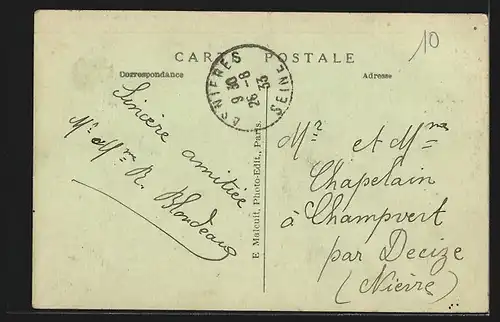 10
CARTE POSTALE
Correspondance
Adresse
ASNIERES
9 30
8-
26 33
SEINE
Sincère amitiée
Mr Mme R. Blondeau
E. Maleuit, Photo-Edit., Paris.
Mr et Mme
Chapelain
à Champvert
par Decize
(Nièvre)